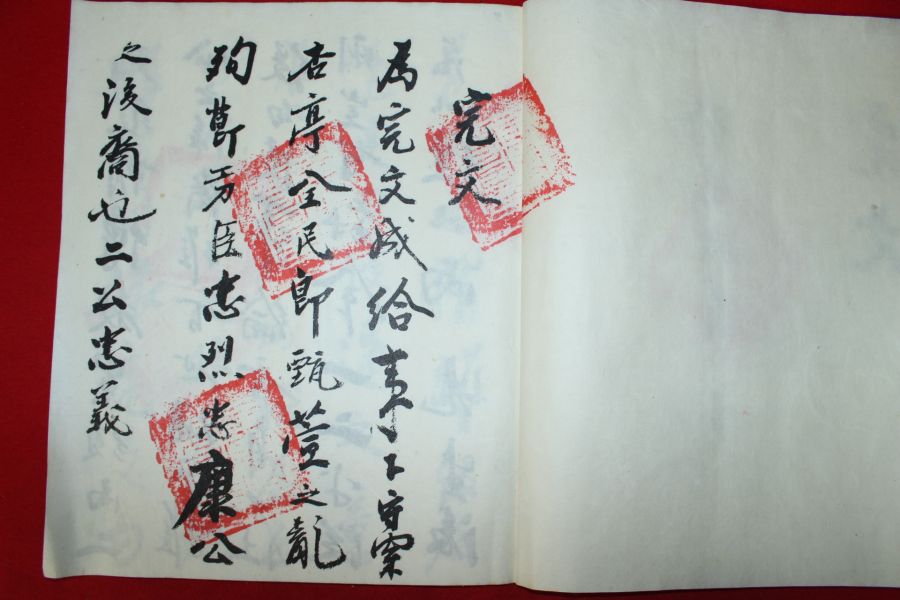 完文
為完文成給事下守
杏亭全民即甄萱之亂
殉節功臣忠烈忠康公
之後裔也二公忠義